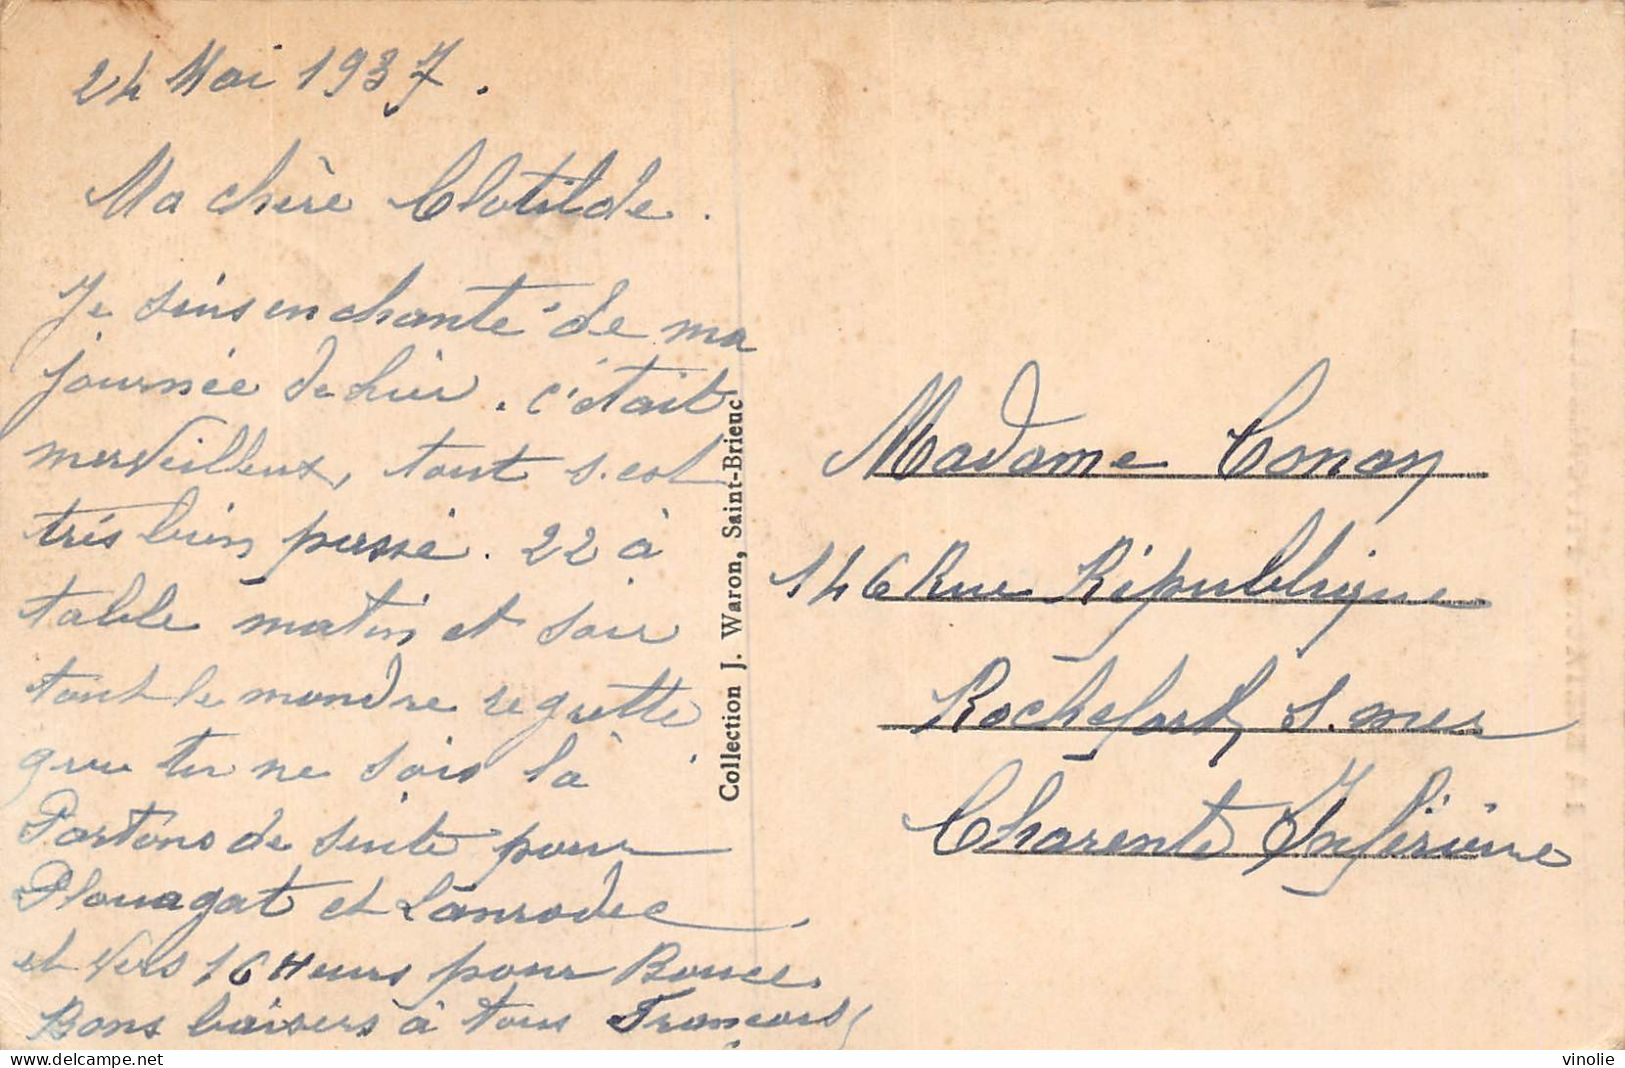 24 Mai 1937.
Ma chère Clotilde.
Je suis enchanté de ma
journée de hier. c'était
merveilleux, tout s. est
très bien passé. 22 à
table matin et soir
tout le mondre regrette
que tu ne sois là
Partons de suite pour
Plouagat et Lanrodec
et vers 16 Heures pour
Bons baisers à tous François
Collection J. Waron, Saint-Brieuc
Madame Conan
146 Rue République
Rochefort s. mer
Charente Inférieure
vinolie